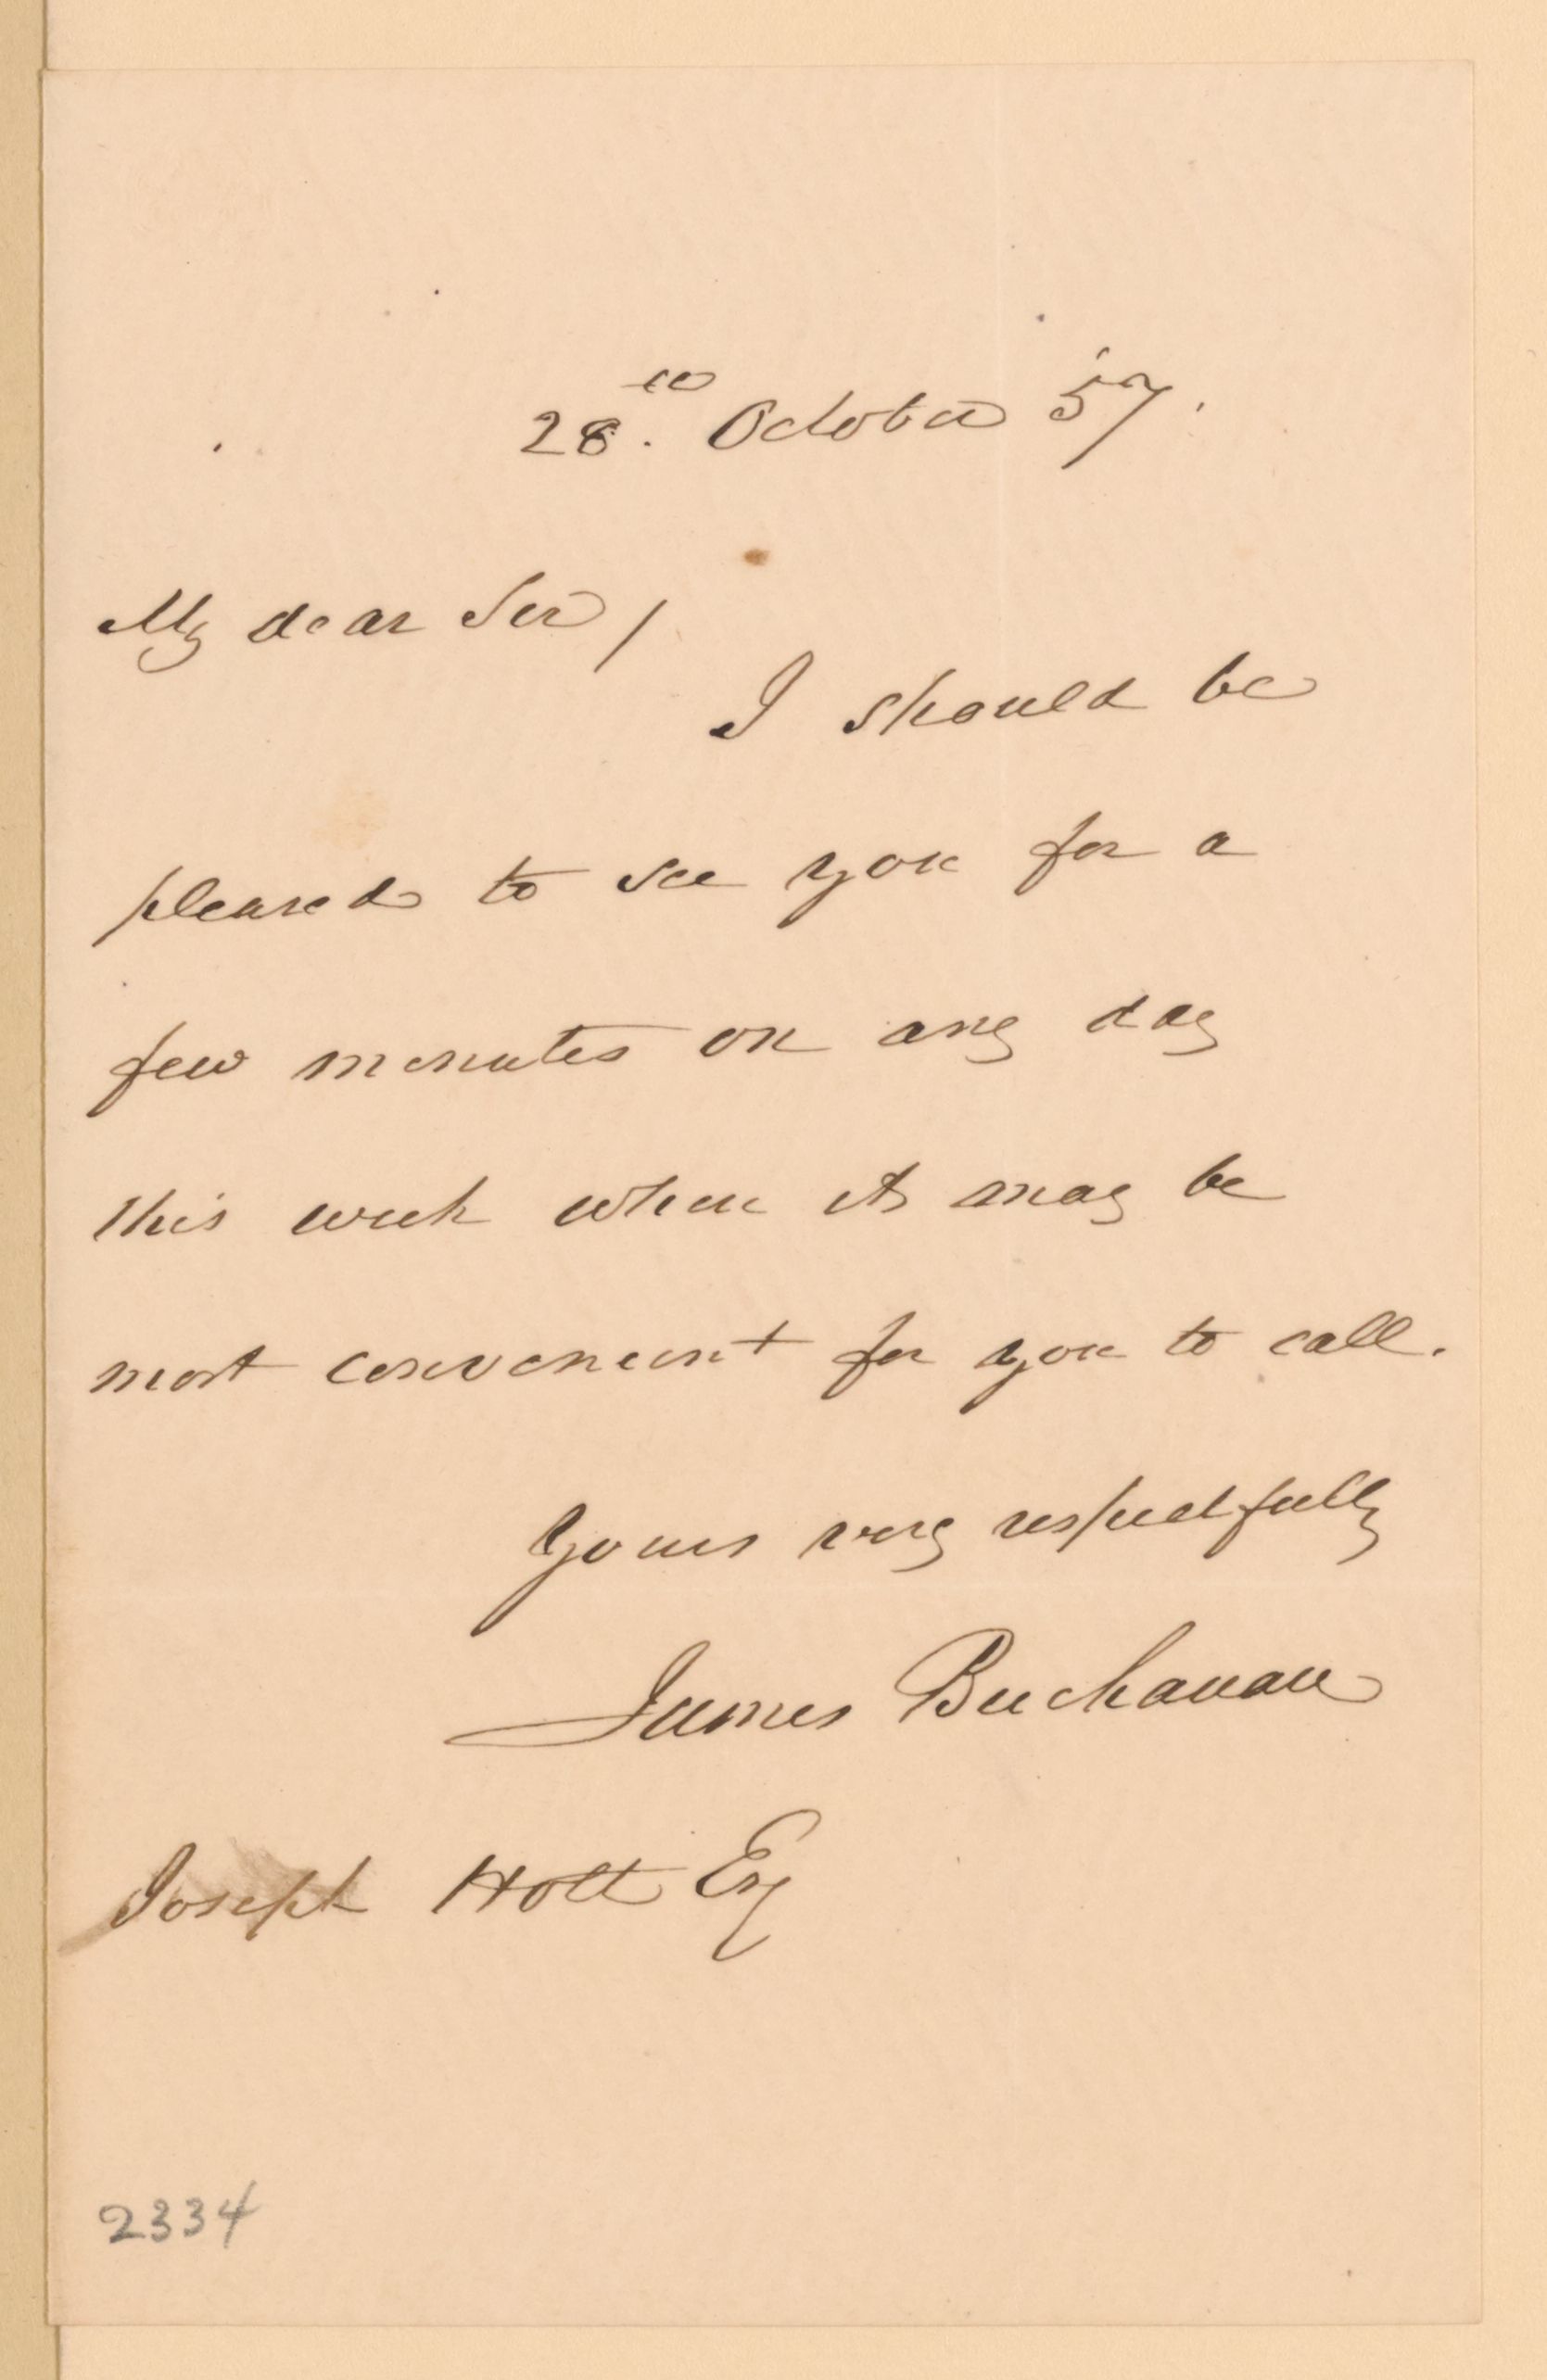 28th. October 57.
My dear Sir,
I should be
pleased to see you for a
few minutes on any day
this week when it may be
most convenient for you to call.
Yours very respectfully
James Buchanan
Joseph Holt Esq
2334